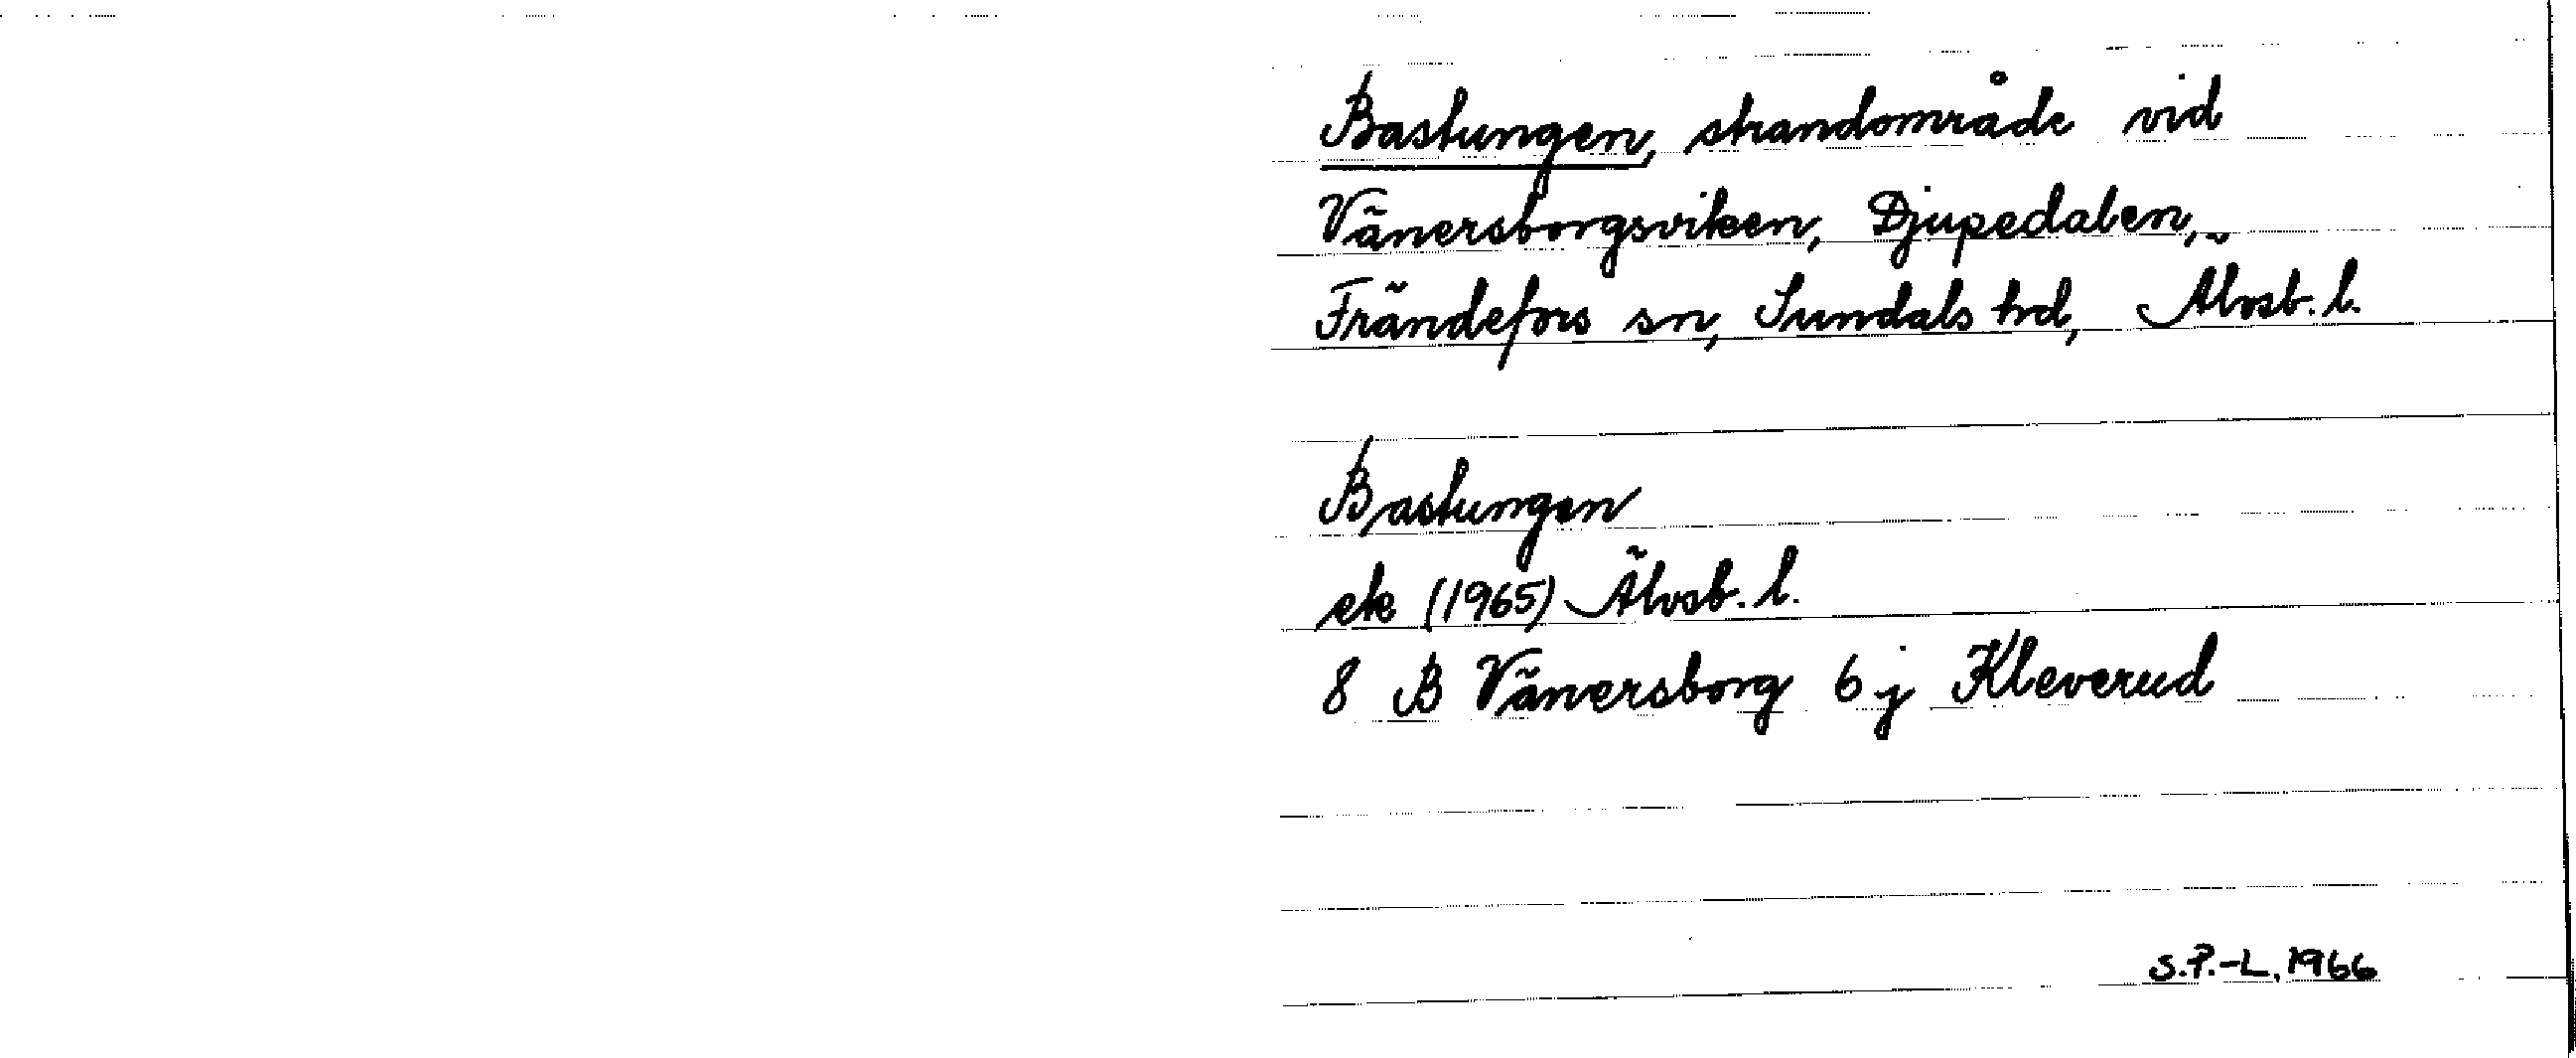 Bastungen, strandområde vid
Vänersborgsviken, Djupedalen,
Frändefors sn, Sundals hd, Älvsb. l.
Bastungen
ek (1965) Älvsb. l.
8 B Vänersborg 6 j Kleverud
S.P.-L. 1966